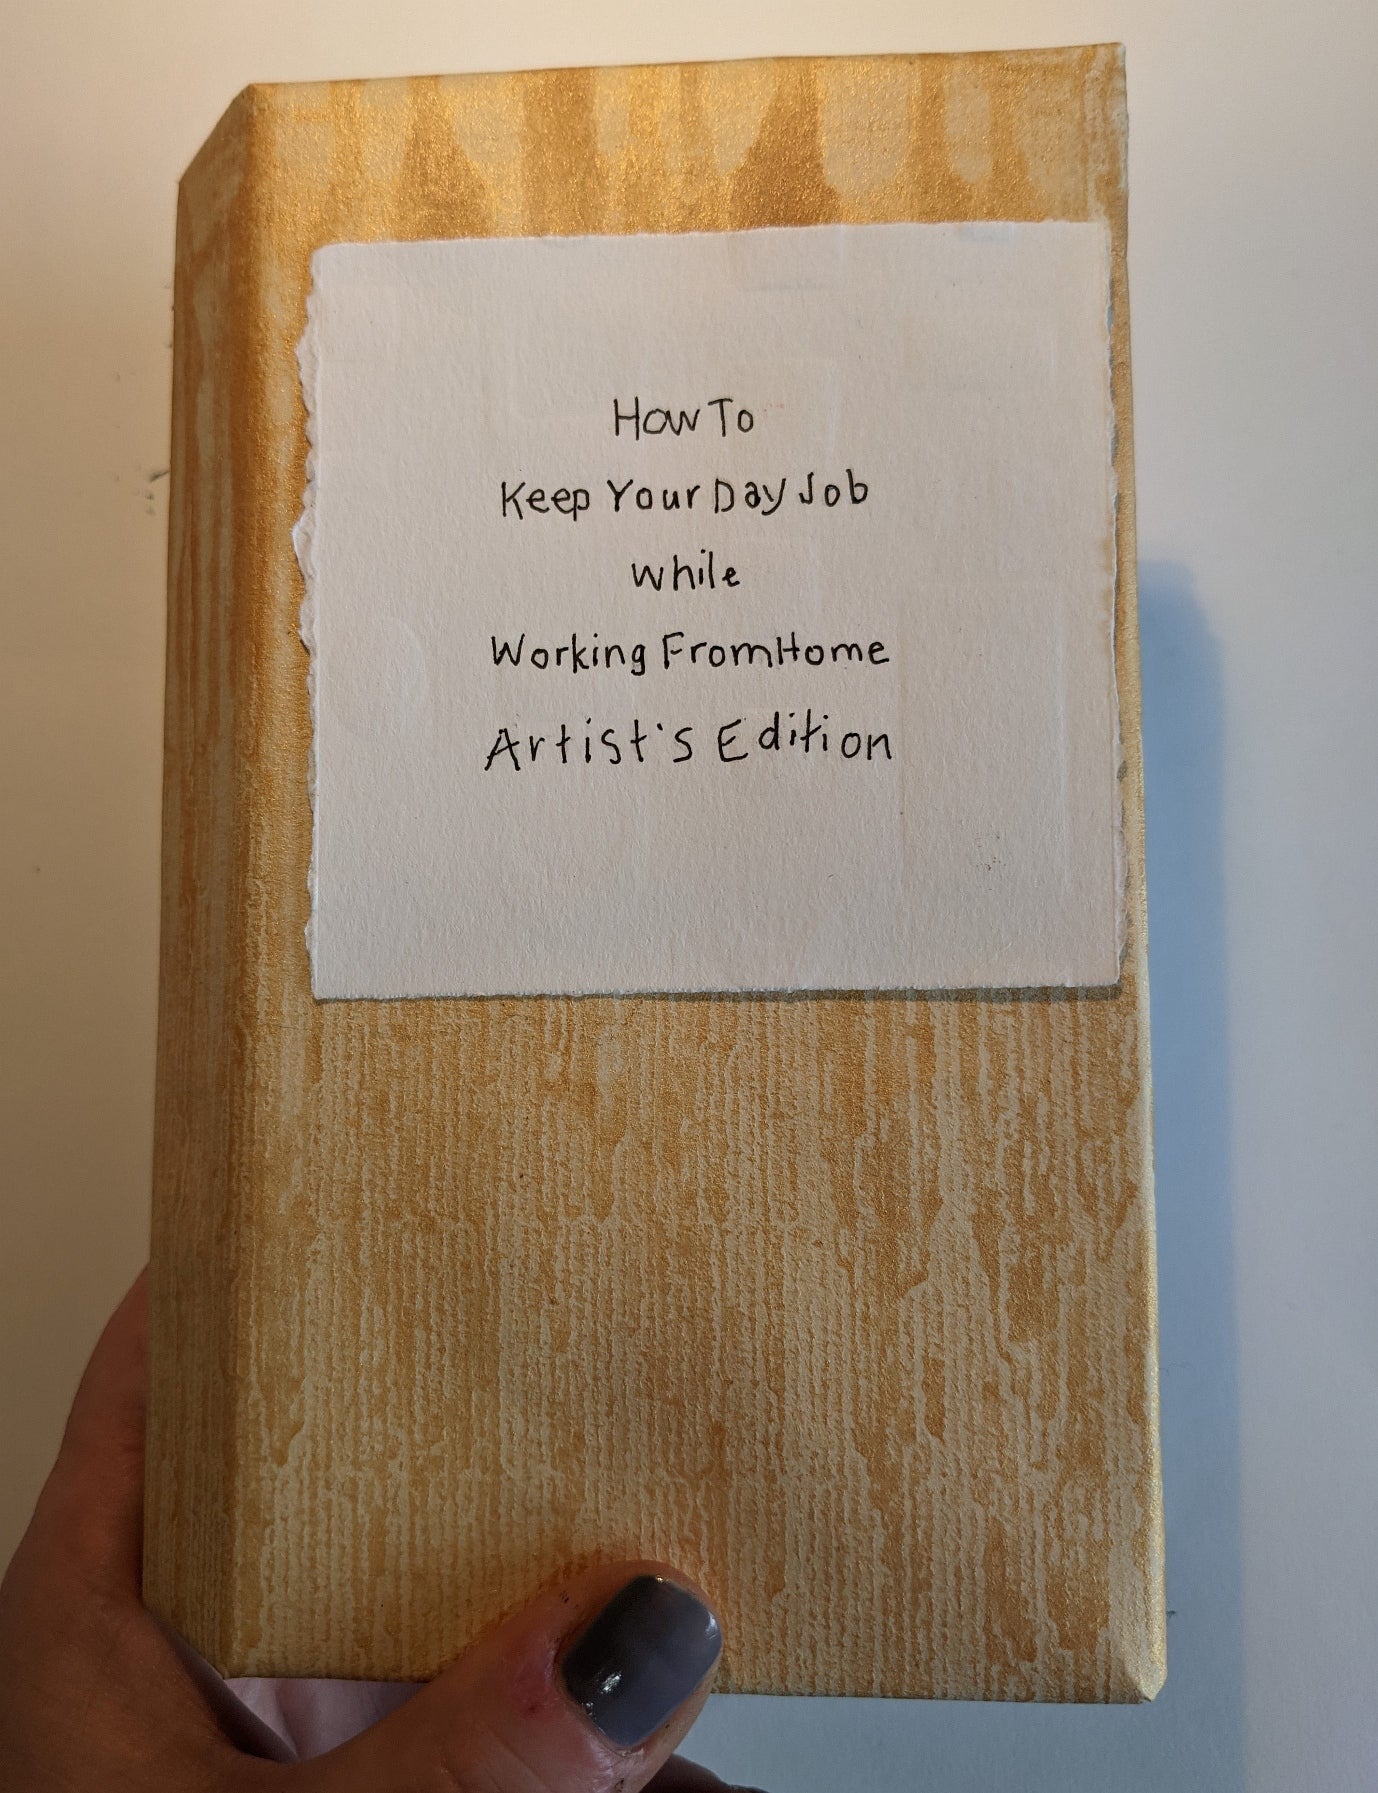 How To
Keep Your Day Job
while
Working From Home
Artist's Edition